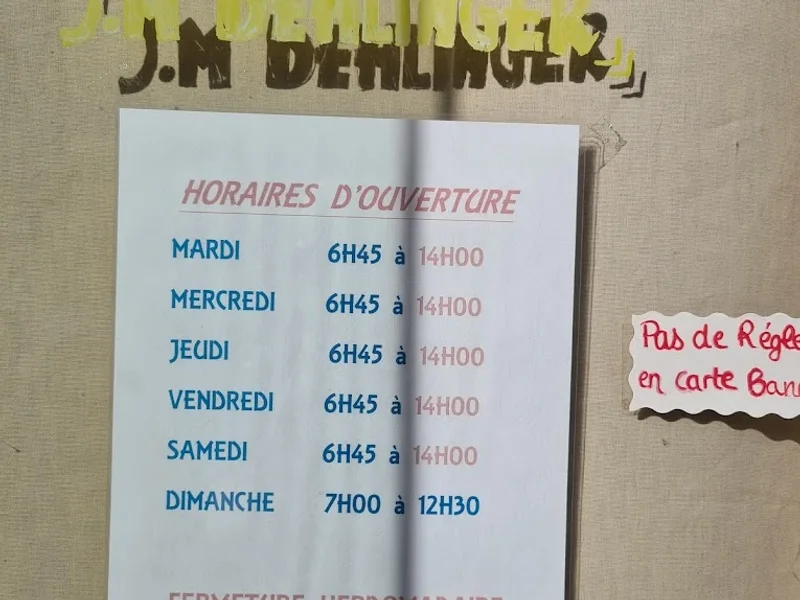 J.M DEHLINGER
HORAIRES D'OUVERTURE
MARDI 6H45 à 14H00
MERCREDI 6H45 à 14H00
JEUDI 6H45 à 14H00
VENDREDI 6H45 à 14H00
SAMEDI 6H45 à 14H00
DIMANCHE 7H00 à 12H30
FERMETURE HEBDOMADAIRE
Pas de Régle
en carte Ban